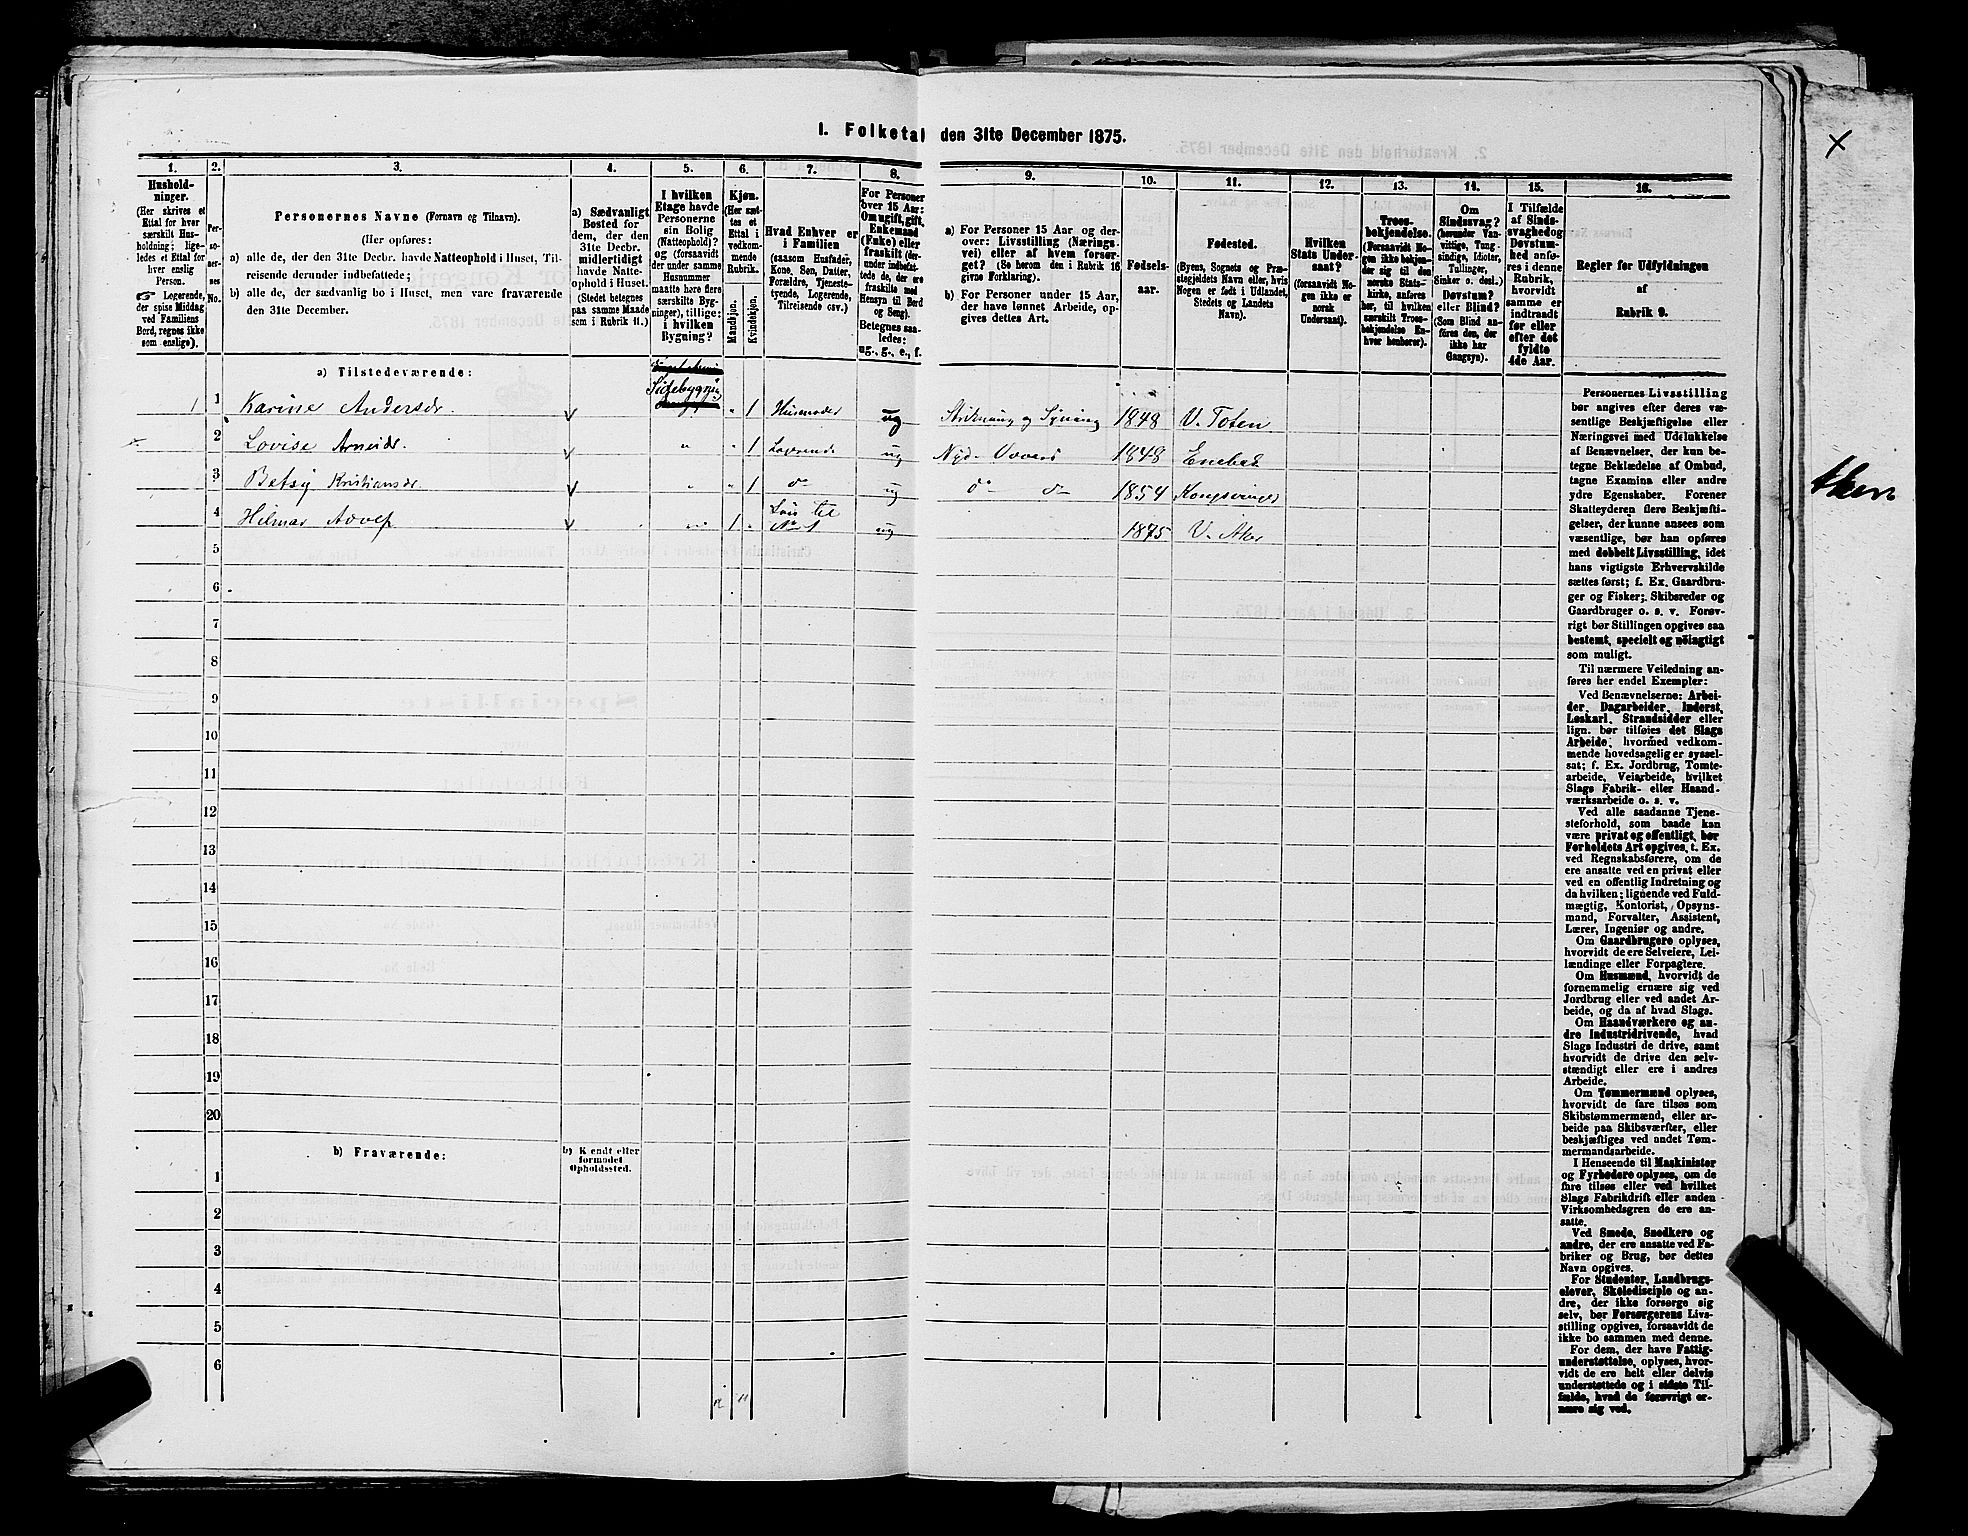 I. Folketal den 31te December 1875.
1. 2. 3. 4. 5. 6. 7. 8. 9. 10. 11. 12. 13. 14. 15. 16.
Husholdninger.
(Her skrives et
Ettal for hver
særskilt Husholdning;
ligeledes et Ettal for
hver enslig
Person.
Logerende,
der spise Middag
ved Familiens
Bord, regnes ikke
som enslige).
Personernes No.
Personernes Navne (Fornavn og Tilnavn).
(Her opføres:
a) alle de, der den 31te Decbr. havde Natteophold i Huset, Tilreisende derunder indbefattede;
b) alle de, der sædvanlig bo i Huset, men vare fraværende
den 31te December.
a) Sædvanligt
Bosted for
dem, der den
31te Decbr.
midlertidigt
havde Natteophold i Huset.
(Stedet betegnes
paa samme Maade
som i Rubrik 11.)
I hvilken
Etage havde
Personerne
sin Bolig
(Natteophold)?
og (forsaavidt
der under samme
Husnummer
maatte høre flere
særskilte Bygninger), tillige:
i hvilken
Bygning?
Kjøn.
(Her sættes et
Ettal i
vedkommende
Rubrik.
Mandkjøn.
Kvindekjøn.
Hvad Enhver er
i Familien
(saasom Husfader,
Kone, Søn, Datter,
Forældre, Tjenestetyende, Logerende,
Tilreisende osv.)
For Personer
over 15 Aar:
Om ugift, gift,
Enkemand
(Enke) eller
fraskilt (derunder indbefattede de, der ere
fraskilte med
Hensyn til Bord
og Seng).
Betegnes saaledes:
ug., g., e., f.
a) For Personer 15 Aar og derover: Livsstilling (Næringsvei) eller af hvem forsørget? (Se herom den i Rubrik 16
givne Forklaring).
b) For Personer under 15 Aar,
der have lønnet Arbeide, opgives dettes Art.
Fødselsaar.
Fødested.
(Byens, Sognets og Præstegjeldets Navn eller, hvis
Nogen er født i Udlandet,
Stedets og Landets
Navn).
Hvilken
Stats Undersaat?
(forsaavidt Nogen ikke er
norsk
Undersaat).
Troesbekjendelse.
(Forsaavidt Nogen ikke bekjender sig til den
norske Statskirke, anføres
her, til hvilken
særskilt Troesbekjendelse Enhver henhører).
Om
Sindssvag?
(herunder Vanvittige, Tungsindige, Idioter,
Tullinger,
Sinker o. desl.)
Døvstum?
eller Blind?
(Som Blind anføres den, der
ikke har
Gangsyn).
I Tilfælde
af Sindssvaghed og
Døvstumhed anføres i denne
Rubrik,
hvorvidt
samme er
indtraadt
før eller
efter det
fyldte
4de Aar.
Regler for Udfyldningen
af
Rubrik 9.
a) Tilstedeværende:
1 1 Karine Andersdr. Sidebygn. " 1 Husmoder ug Strikning og Syning 1848 V. Toten
2 Lovise Arneidr. " " 1 Logerende ug 1848 Enebak
3 Betsy Kristiansdr. " " 1 do ug do do 1854 Kongsvinger
4 Hilmar " 1 " til No 1 ug 1875 V. Aker
5
6
7
8
9
10
11
12
13
14
15
16
17
18
19
20
b) Fraværende:
b) Kjendt eller
formodet
Opholdssted.
1
2
3
4
5
6
Personernes Livsstilling
bør angives efter deres væsentlige Beskjæftigelse eller
Næringsvei med Udelukkelse
af Benævnelser, der kun betegne Beklædelse af Ombud,
tagne Examina eller andre
ydre Egenskaber. Forener
Skatteyderen flere Beskjæftigelser, der kunne ansees som
væsentlige, bør han opføres
med dobbelt Livsstilling, idet
hans vigtigste Erhvervskilde
sættes først; f. Ex. Gaardbruger og Fisker; Skibsreder og
Gaardbruger o. s. v. Forøvrigt bør Stillingen opgives saa
bestemt, specielt og nøiagtigt
som muligt.
Til nærmere Veiledning anføres her endel Exempler:
Ved Benævnelserne: Arbeider, Dagarbeider, Inderst,
Løskarl, Strandsidder eller
lign. bør tilføies det Slags
Arbeide, hvormed vedkommende hovedsagelig er sysselsat; f. Ex. Jordbrug, Tomtearbeide, Veiarbeide, hvilket
Slags Fabrik- eller Haandværksarbeide o. s. v.
Ved alle saadanne Tjenesteforhold, som baade kan
være privat og offentligt, bør
Forholdets Art opgives, t. Ex.
ved Regnskabsførere, om de
ere ansatte ved en privat eller
ved en offentlig Indretning og
da hvilken; lignende ved Fuldmægtig, Kontorist, Opsynsmand, Forvalter, Assistent,
Lærer, Ingeniør og andre.
Om Gaardbrugere oplyses,
hvorvidt de ere Selveiere, Leilændinge eller Forpagtere.
Om Husmænd, hvorvidt de
fornemmelig ernære sig ved
Jordbrug eller ved andet Arbeide, og da af hvad Slags.
Om Haandværkere og andre Industridrivende, hvad
Slags Industri de drive, samt
hvorvidt de drive den selvstændigt eller ere i andres
Arbeide.
Om Tømmermænd oplyses,
hvorvidt de fare tilsøs som
Skibstømmermænd, eller arbeide paa Skibsværfter, eller
beskjæftiges ved andet Tømmermandsarbeide.
I Henseende til Maskinister
og Fyrbødere oplyses, om de
fare tilsøs eller ved hvilket
Slags Fabrikdrift eller anden
Virksomhedsgren de ere ansatte.
Ved Smede, Snedkere og
andre, der ere ansatte ved Fabriker og Brug, bør dettes
Navn opgives.
For Studenter, Landbrugselever, Skoledisciple og andre, der ikke forsørge sig
selv, bør Forsørgerens Livsstilling opgives, forsaavidt de
ikke bo sammen med denne.
For dem, der have Fattigunderstøttelse, oplyses, hvorvidt de ere helt eller delvis
understøttede og i sidste Tilfælde, hvad de forøvrigt ernære sig ved.